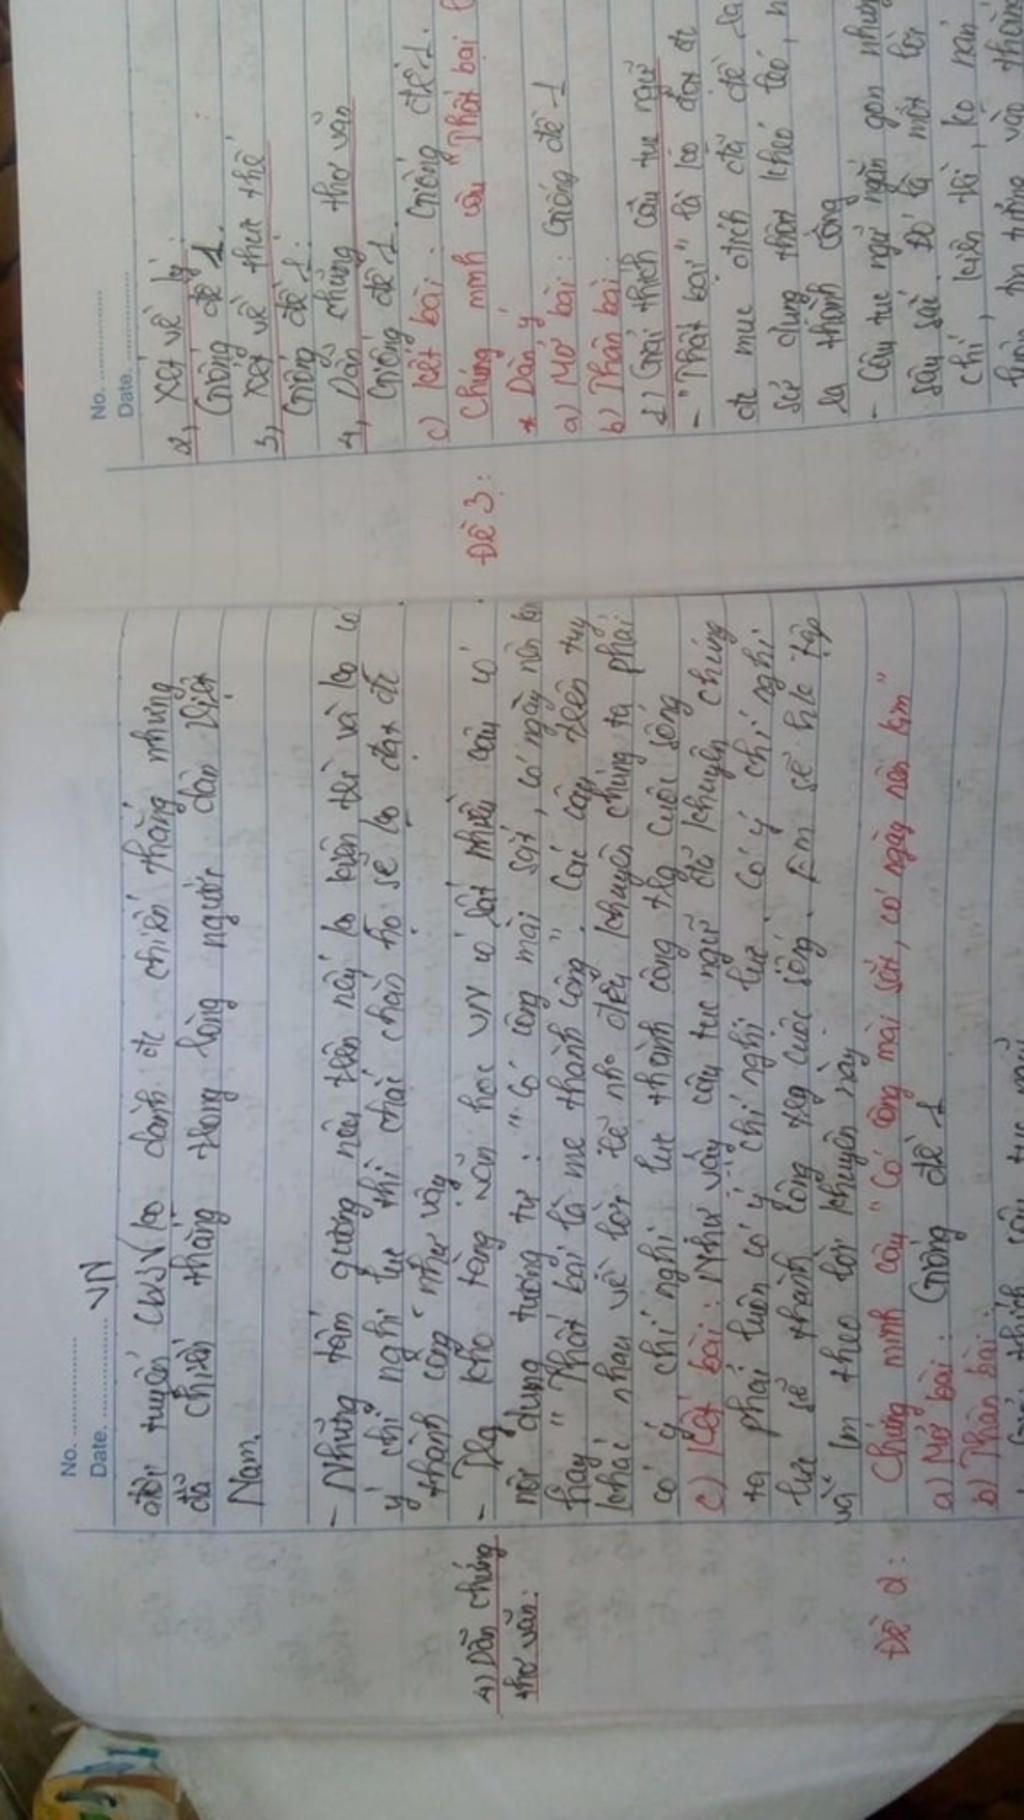 No. ............
Date. ............ VN
đội tuyển U23VN ko dành đc chiến thắng nhưng
đã chiến thắng trong lòng người dân Việt
Nam.
- Những tấm gương nêu trên nếu ko kiên trì và ko có
ý chí nghị lực thì chắc chắn họ sẽ ko đạt đc
thành công như vậy
4) Dẫn chứng
thơ văn:
- Trg kho tàng văn học VN có rất nhiều câu có
nội dung tương tự : "Có công mài sắt, có ngày nên kim
hay " Thất bại là mẹ thành công". Các câu trên tuy
khác nhau về lời lẽ nhg đều khuyên chúng ta phải
có ý chí nghị lực thành công trg cuộc sống
c) Kết bài: Như vậy câu tục ngữ đã khuyên chúng
ta phải luôn có ý chí nghị lực. Có ý chí nghị
lực sẽ thành công trg cuộc sống. Em sẽ học tập
và làm theo lời khuyên này
Đề 2: Chứng minh câu "Có công mài sắt, có ngày nên kim"
a) Mở bài: Giống đề 1
b) Thân bài:
thích câu tục ngữ
No. ............
Date. ............
2, Xét về lý
Giống đề 1.
3, Xét về thực thế
Giống đề 1.
4, Dẫn chứng thơ văn
Giống đề 1.
c) Kết bài: Giống đề 1.
Đề 3: Chứng minh câu "Thất bại
* Dàn ý
a) Mở bài: Giống đề 1
b) Thân bài:
1) Giải thích câu tục ngữ
- "Thất bại" là ko đạt đc
đc mục đích đã đề ra
sử dụng thật khéo léo,
là thành công
- Câu tục ngữ ngắn gọn nhưng
sâu sắc. Đó là một lời
chí, kiên trì, ko nản
luôn tin tưởng vào